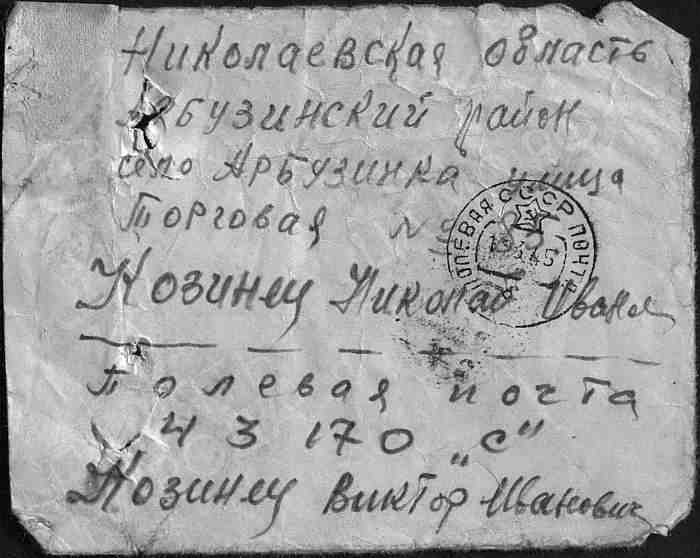 Николаевская область
Арбузинский район
село Арбузинка улица
Торговая №
Козинец Николай Иван
Полевая почта
43170 „С"
Козинец Виктор Иванович
СССР ПОЛЕВАЯ ПОЧТА